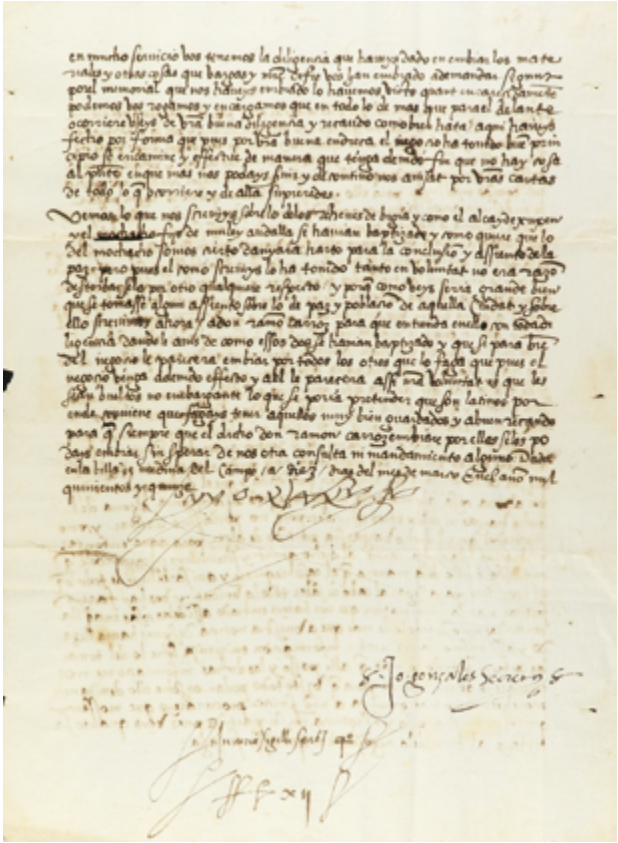 en mucho servicio vos tenemos la diligencia que haveys dado en embiar los mate
riales y otras cosas que vargas y
por el memorial que nos haveys embiado lo havemos visto quant
podemos vos rogamos y encargamos que en todo lo de mas que para el delante
ocorriere useys de vra buena diligencia y recaudo como bien hata aqui haveys
fecho por forma que pues por vra buena endreça el negocio ha tenido buen prin
cipio se encamine y effectue de manera que tenga devido fin que no hay cosa
al pnte en que mas nos podays servir y de contino nos avisat por vras cartas
de todo lo q ocorriere y de alla supieredes.
Vemos lo que nos screvis sobre lo delos de bugia y como el alcayde
y el mochacho fijo de muley audalla se havian baptizado y como quiere que lo
del mochacho somos cierto danyara harto para la conclusion y assiento dela
paz pero pues el como screvis lo ha tenido tanto en voluntat no era razon
destorbargelo por otro qualquiere respecto y porq como veys seria grande bien
que se tomasse algun assiento sobre lo de paz y poblacio de aquella Ciudat y sobre
ello screvimos ahora a don ramo carroz para que entienda en ello con toda di
ligencia dando le avis de como essos dos se havian baptizado y que si para bie
del negocio le parecera embiar por todos los otros que lo faga que pues el
negocio venga adevido effecto y a el le parecera assi nra voluntat es que les
sean bueltos no embargante lo que se poria pretender que son latinos por
ende conviene que fagays tener aquellos muy bien guardados y a buen recaudo
para q siempre que el dicho don ramon carroz embiare por ellos se los po
days embiar sin sperar de nos otra consulta ni mandamiento alguno. Dada
en la villa de medina del Campo, a, diez, dias del mes de março En el año mil
quinientos y quinze
Jo. gonçales Secretari
xii